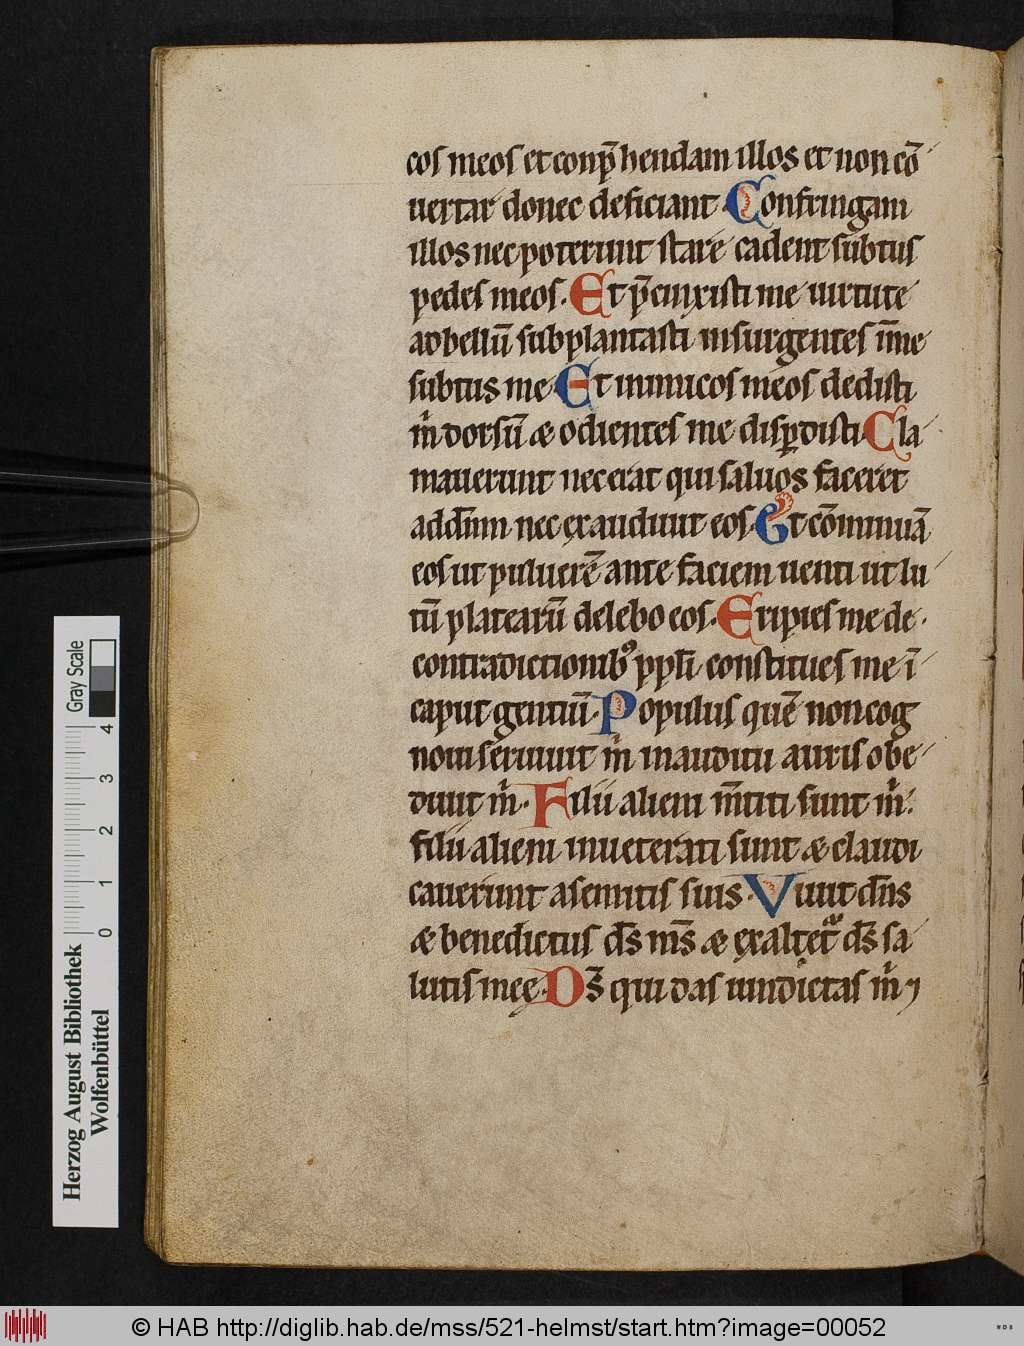 cos meos et conp̄hendam illos et non cō
uertar donec deficiant. Confringam
illos nec poterunt stare cadent subtus
pedes meos. Et p̄cinxisti me uirtute
ad bellū subplantasti insurgentes ī me
subtus me. Et inimicos meos dedisti
m̄ dorsū æ odientes me disꝑdisti. Cla
mauerunt nec erat qui saluos faceret
ad dn̄m nec exaudiuit eos. Et cōminuā
eos ut puluerē ante faciem uenti ut lu
tū platearū delebo eos. Eripies me de
contradictionibꝰ ppłi constitues me ī
caput gentiū. Populus quē non cog
noui seruiuit m̄ in auditu auris obe
diuit m̄. Filii alieni m̄titi sunt m̄:
filii alieni inueterati sunt æ claudi
cauerunt a semitis suis. Viuit dn̄s
æ benedictus ds̄ ms̄ æ exaltet᷑ ds̄ sa
lutis meę. Ds̄ qui das uindictas m̄
Gray Scale
0 1 2 3 4
Herzog August Bibliothek
Wolfenbüttel
© HAB http://diglib.hab.de/mss/521-helmst/start.htm?image=00052